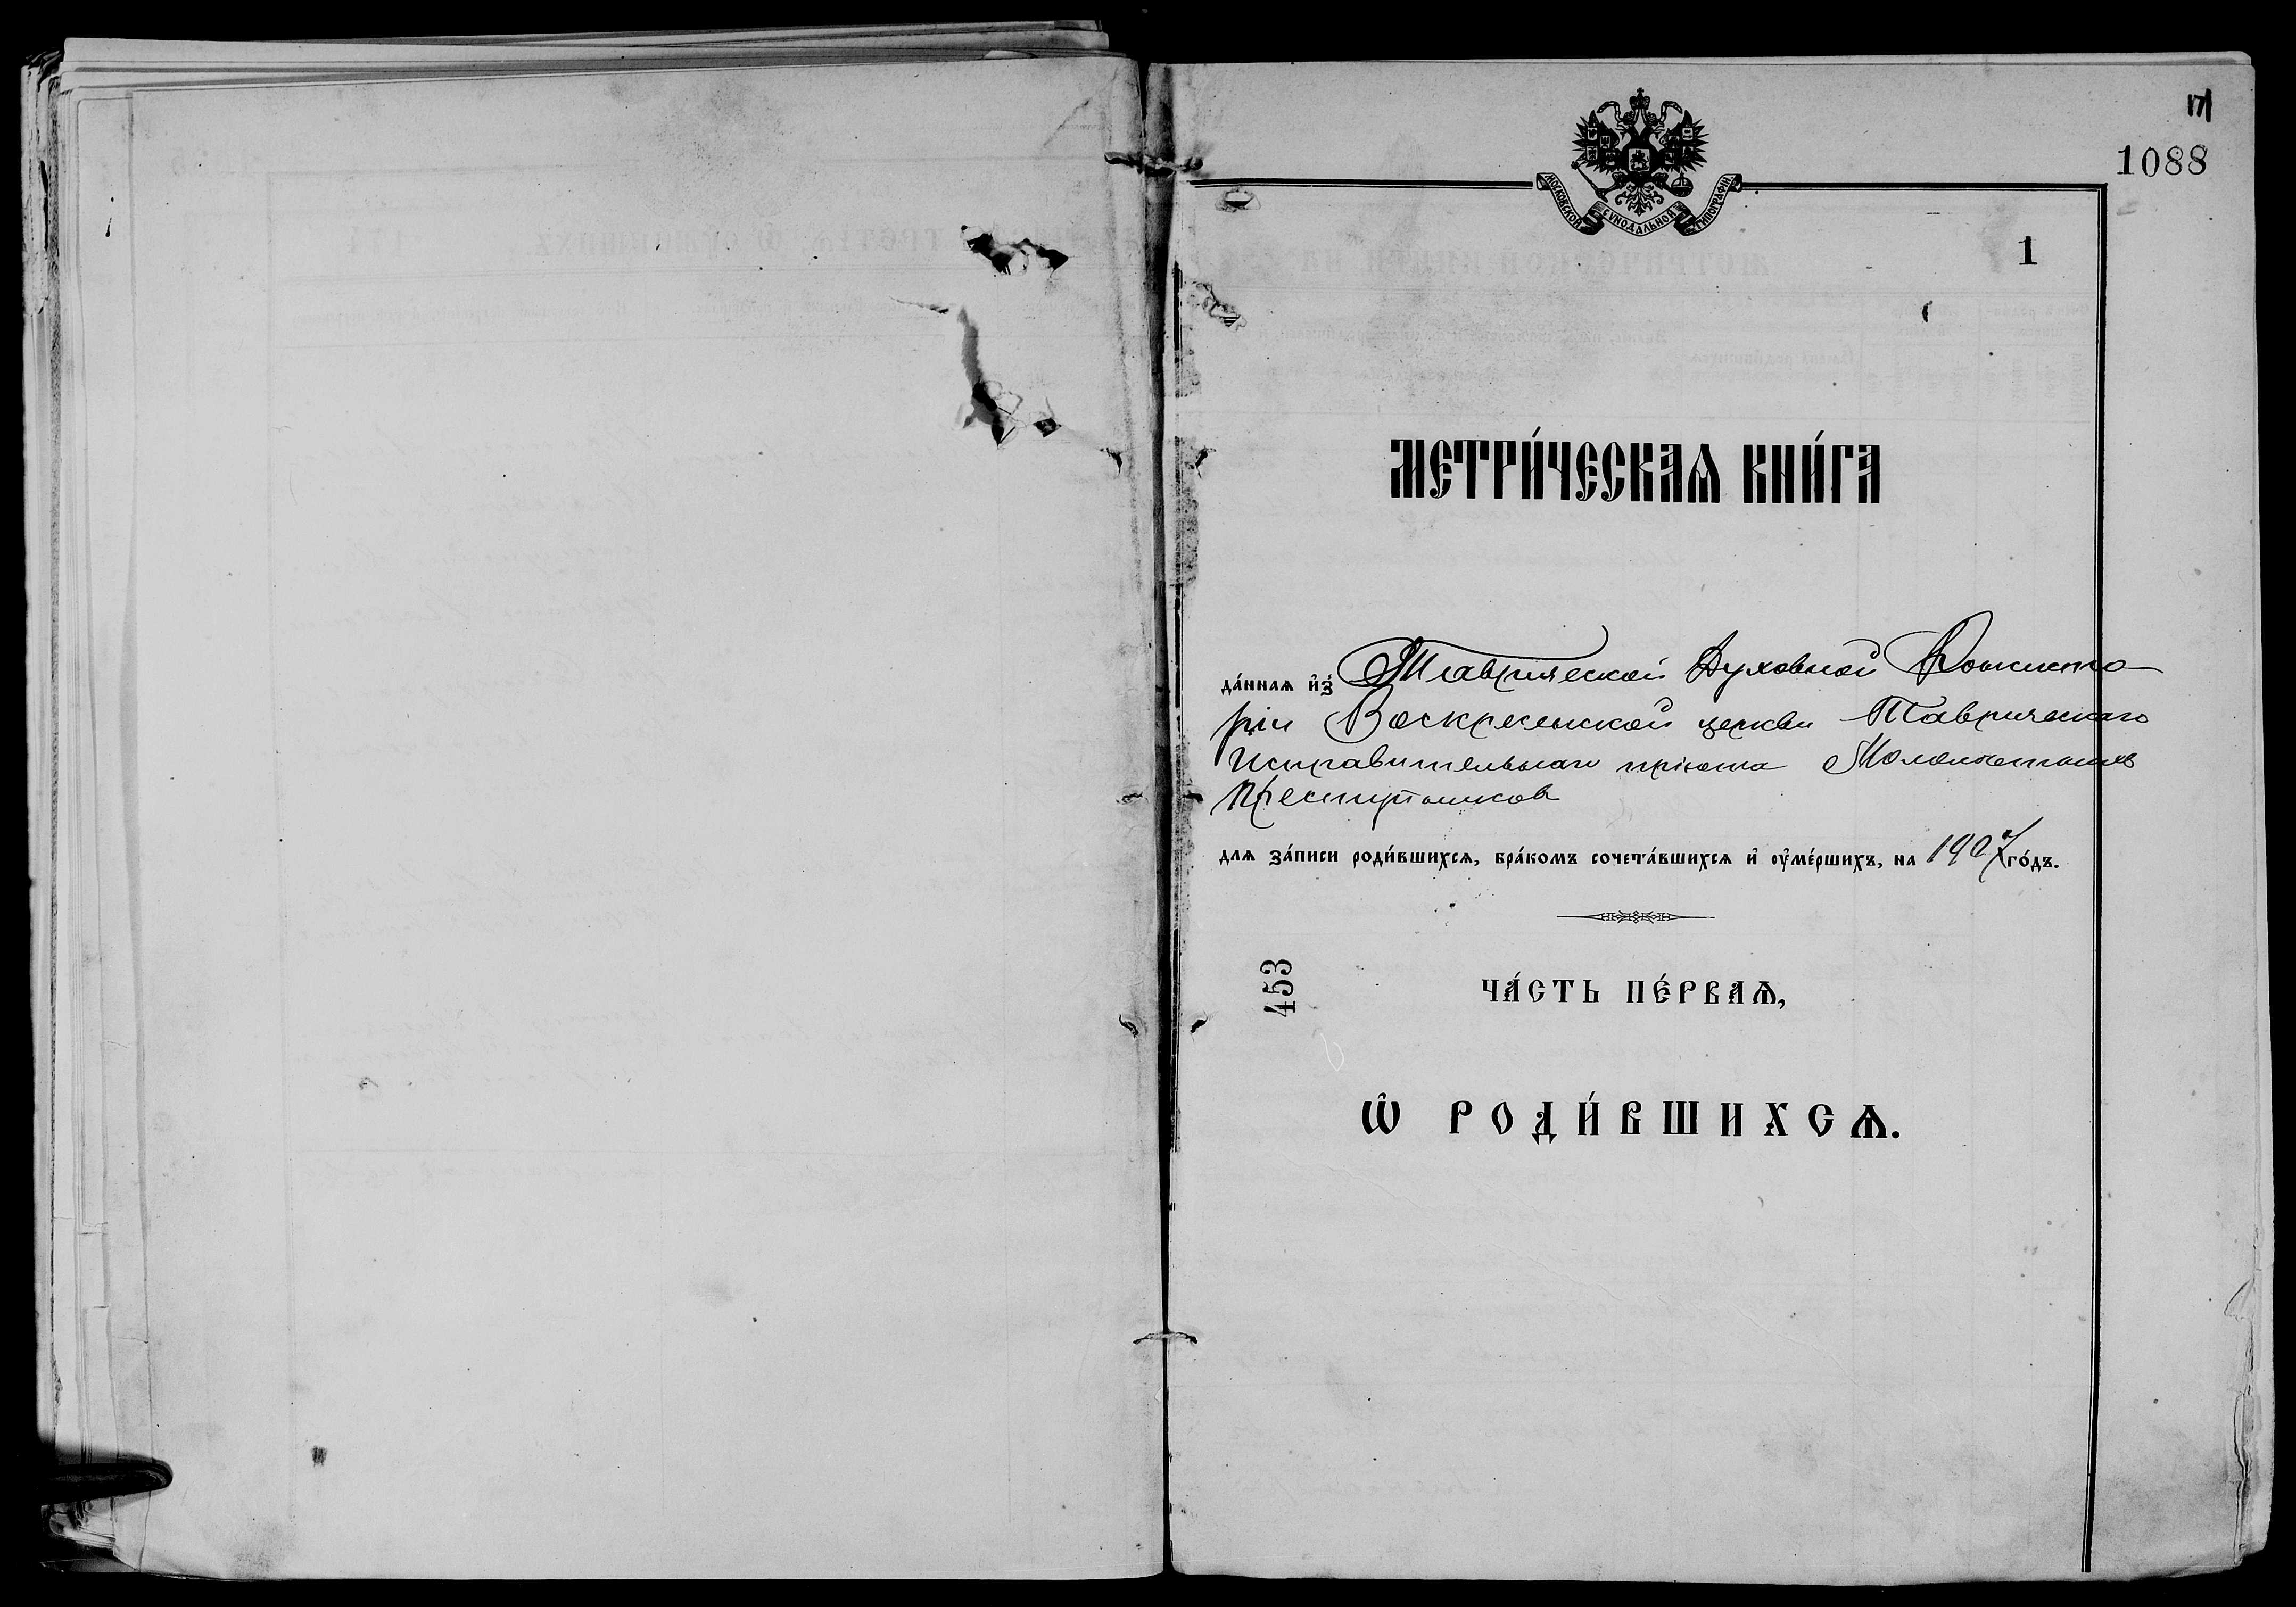 171
1088
МОСКОВСКОЙ СѴНОДАЛЬНОЙ ТИПОГРАФІИ
1
МЕТРИ́ЧЕСКАѦ КНИ́ГА
да́ннаѧ и҆з̾ Таврической Духовной Консисто-
ріи Воскресенской церкви Таврическаго
Исправительнаго пріюта Малолетнихъ
Преступников
длѧ за́писи роди́вшихсѧ, бра́комъ сочета́вшихсѧ и҆ ᲂу҆ме́ршихъ, на 1907 го́дъ.
453
ЧА́СТЬ ПЕ́РВАѦ,
Ѡ҆ РОДИ́ВШИХСѦ.